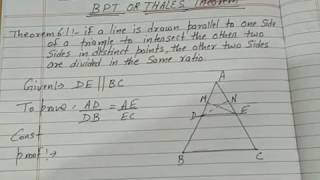 BPT OR THALES Theorem
Theorem 6.1:- if a line is drawn parallel to one side
of a triangle to intersect the other two
sides in distinct points, the other two sides
are divided in the same ratio
Given:- DE || BC
To prove: AD/DB = AE/EC
Const
proof:-
A
M N
D E
B C